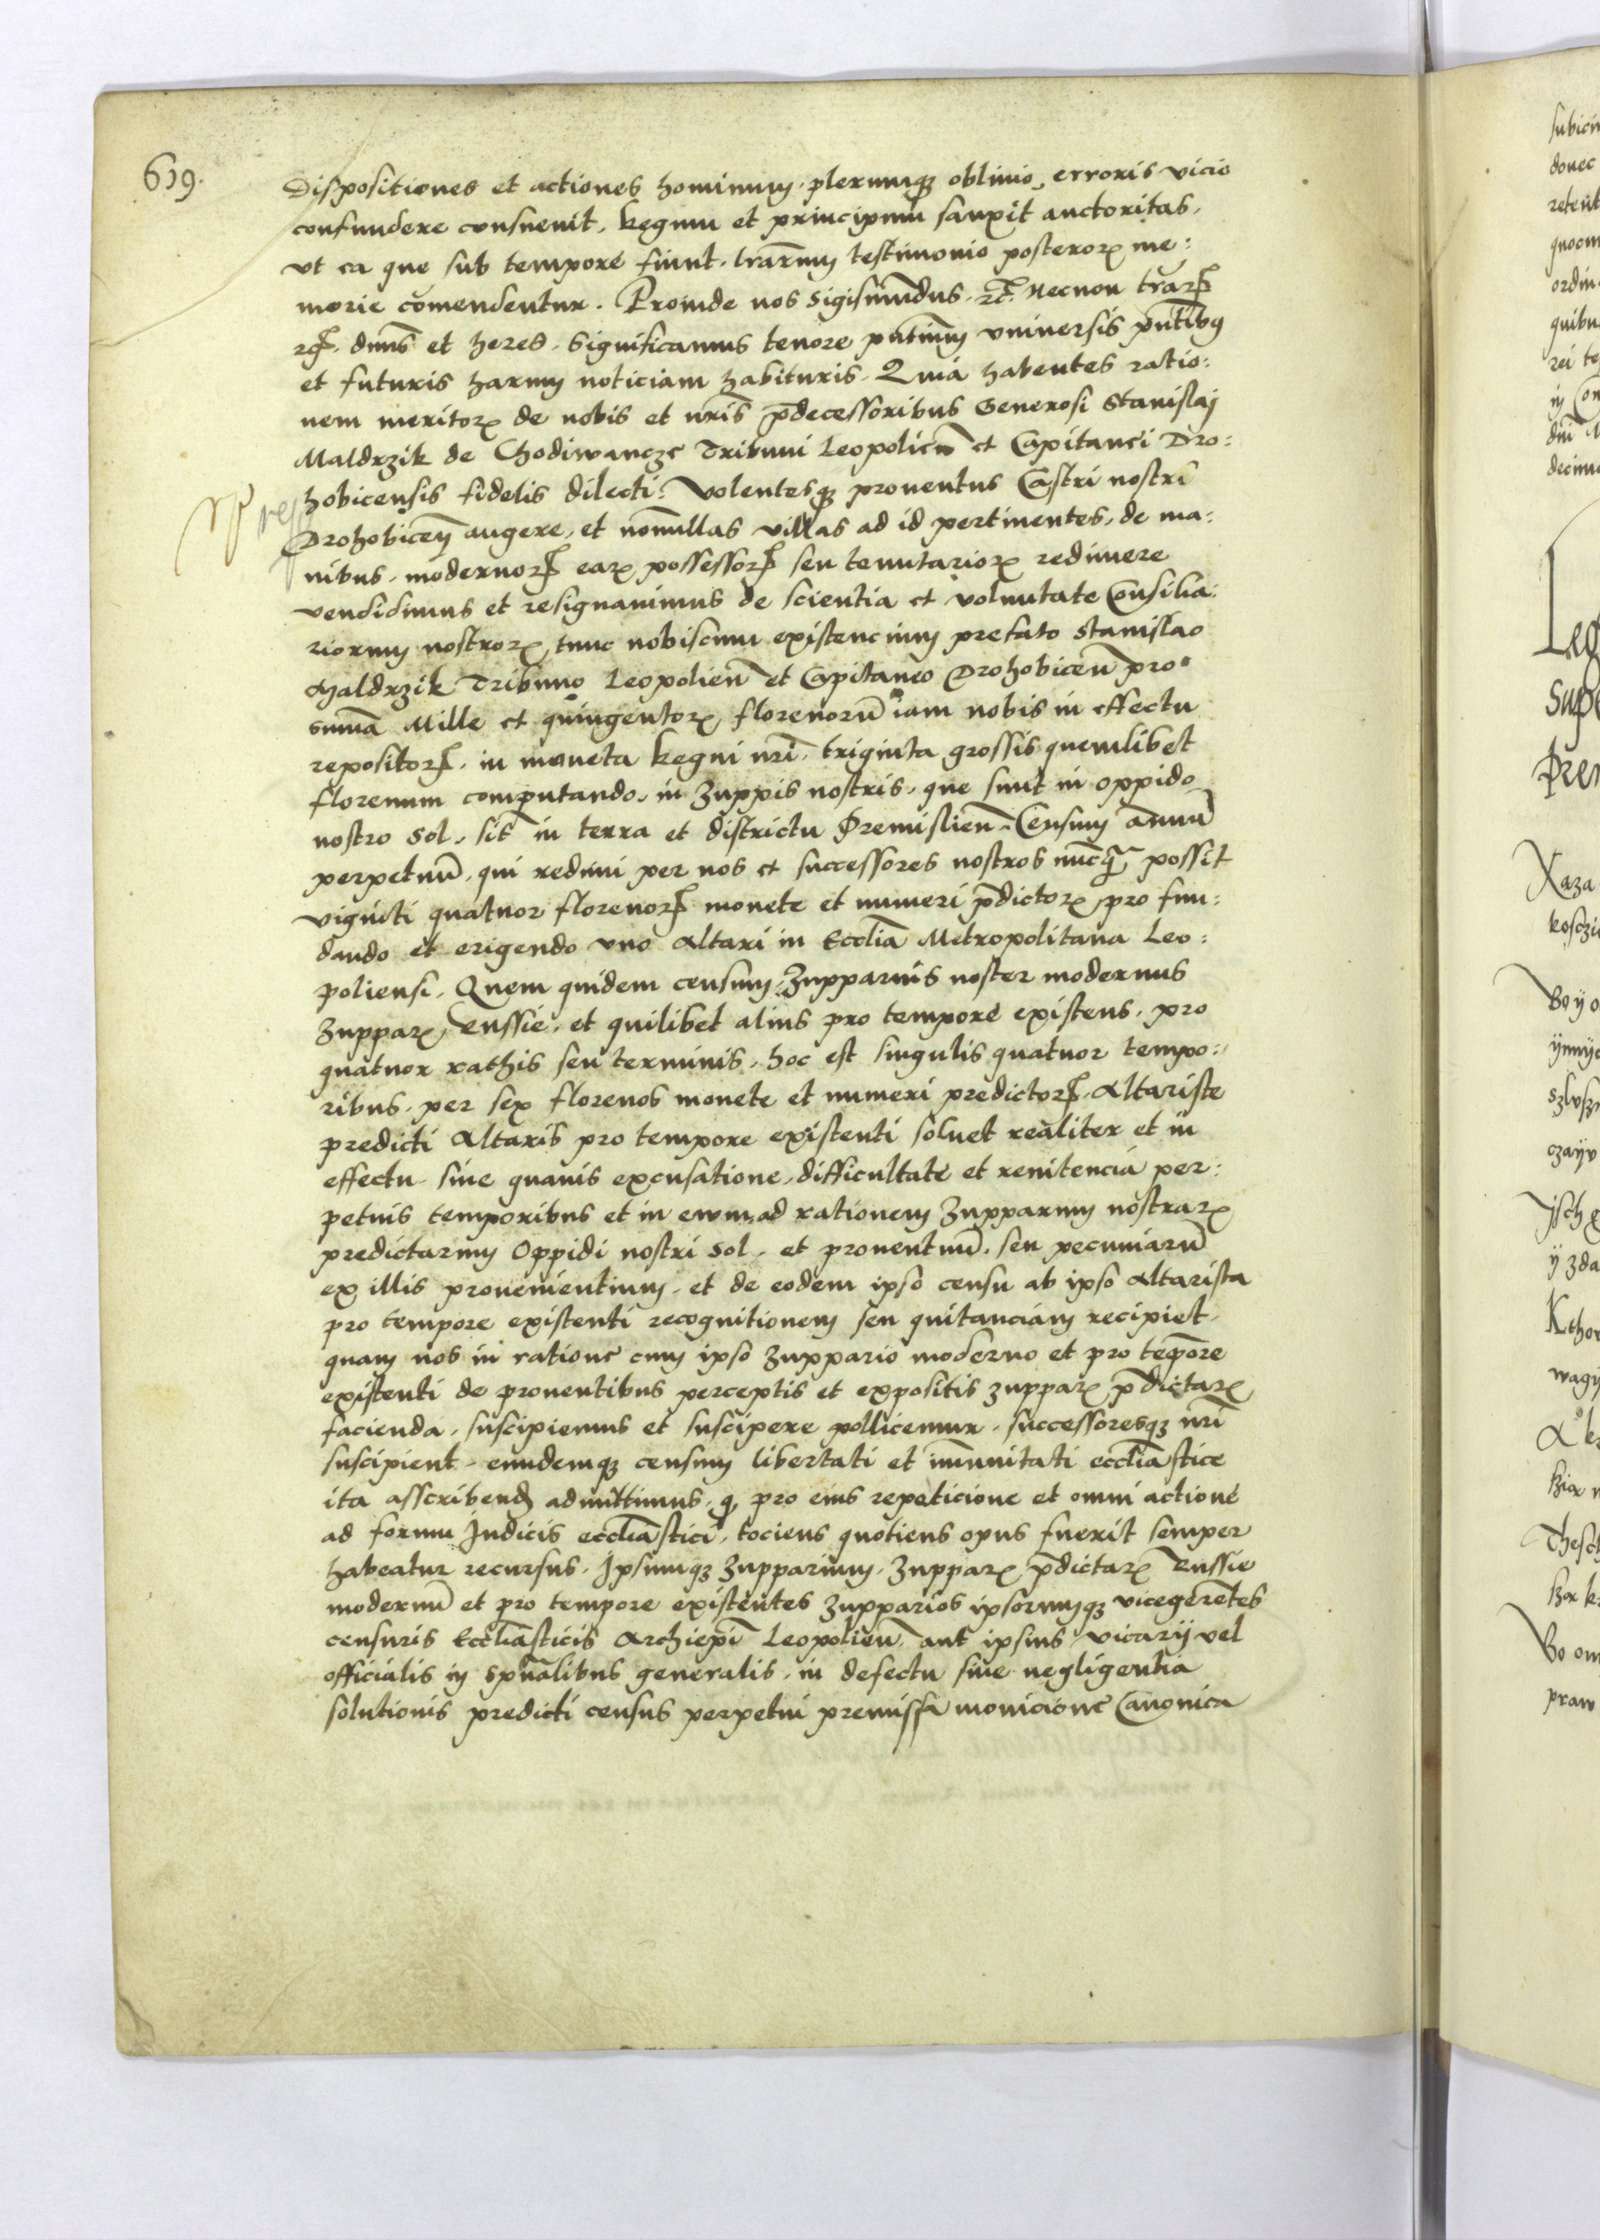 619.
Dispositiones et actiones hominum, plerumqꝫ obliuio, erroris vicio
confundere consueuit, Regum et principum sanxit auctoritas,
vt ea que sub tempore fiunt, lrarum testimonio posteroꝝ me:
morie comendentur. Proinde nos Sigismundus, etc. Necnon trarꝝ
etc. dnus et heres. Significamus tenore pntium vniversis pntibus
et futuris harum noticiam habituris. Quia habentes ratio:
nem meritoꝝ de nobis et nris pdecessoribus Generosi Stanislaj
Maldrzik de Chodiwancze Tribuni Leopolien et Capitanei Dro:
hobicensis fidelis dilecti: Volentesqꝫ prouentus Castri nostri
Drohobicen augere, et nonnullas villas ad id pertinentes, de ma:
nibus, modernoꝝ eaꝝ possessoꝝ seu tenutarioꝝ redimere
vendidimus et resignauimus de scientia et voluntate Consilia:
riorum nostroꝝ, tunc nobiscum existencium prefato Stanislao
Maldrzik Tribuno Leopolien et Capitaneo Drohobicen pro
suma Mille et quingentoꝝ florenorū iam nobis in effectu
repositoꝝ, in moneta Regni nri, triginta grossis quemlibet
florenum computando, in Zuppis nostris, que sunt in oppido
nostro Sol, sit in terra et districtu Premislien. Censum annuū
perpetuū, qui redimi per nos et successores nostros nucq̃ possit
viginti quatuor florenoꝝ monete et numeri pdictoꝝ pro fun:
dando et erigendo vno altari in Ecclia Metropolitana Leo:
poliensi. Quem quidem censum, Zupparius noster modernus
Zuppaꝝ Russie, et quilibet alius pro tempore existens, pro
quatuor rathis seu terminis, hoc est singulis quatuor tempo:
ribus, per sex florenos monete et numeri predictoꝝ, Altariste
predicti Altaris pro tempore existenti soluet realiter et in
effectu sine quauis excusatione, difficultate et renitencia per:
petuis temporibus et in ewum, ad rationem Zupparum nostraꝝ
predictarum Oppidi nostri Sol, et prouentuū, seu pecuniarū
ex illis prouenientium, et de eodem ipso censu ab ipso altarista
pro tempore existenti recognitionem seu quitanciam recipiet,
quam nos in ratione cum ipso Zuppario moderno et pro tempore
existenti de prouentibus perceptis et expositis zuppaꝝ pdictaꝝ
facienda, suscipiemus et suscipere pollicemur, successoresqꝫ nri
suscipient, eundemqꝫ censum libertati et imunitati eccliastice
ita asscribend admittimus, q pro eius repeticione et omni actione
ad forum Judicis eccliastici, tociens quotiens opus fuerit semper
habeatur recursus. Ipsumqꝫ Zupparium, Zuppaꝝ pdictaꝝ Russie
modernū et pro tempore existentes Zupparios ipsorumqꝫ vicegerentes
censuris Eccliasticis Archiepi Leopolien, aut ipsius vicarij vel
officialis in spualibus generalis, in defectu siue negligentia
solutionis predicti census perpetui premissa monicione Canonica